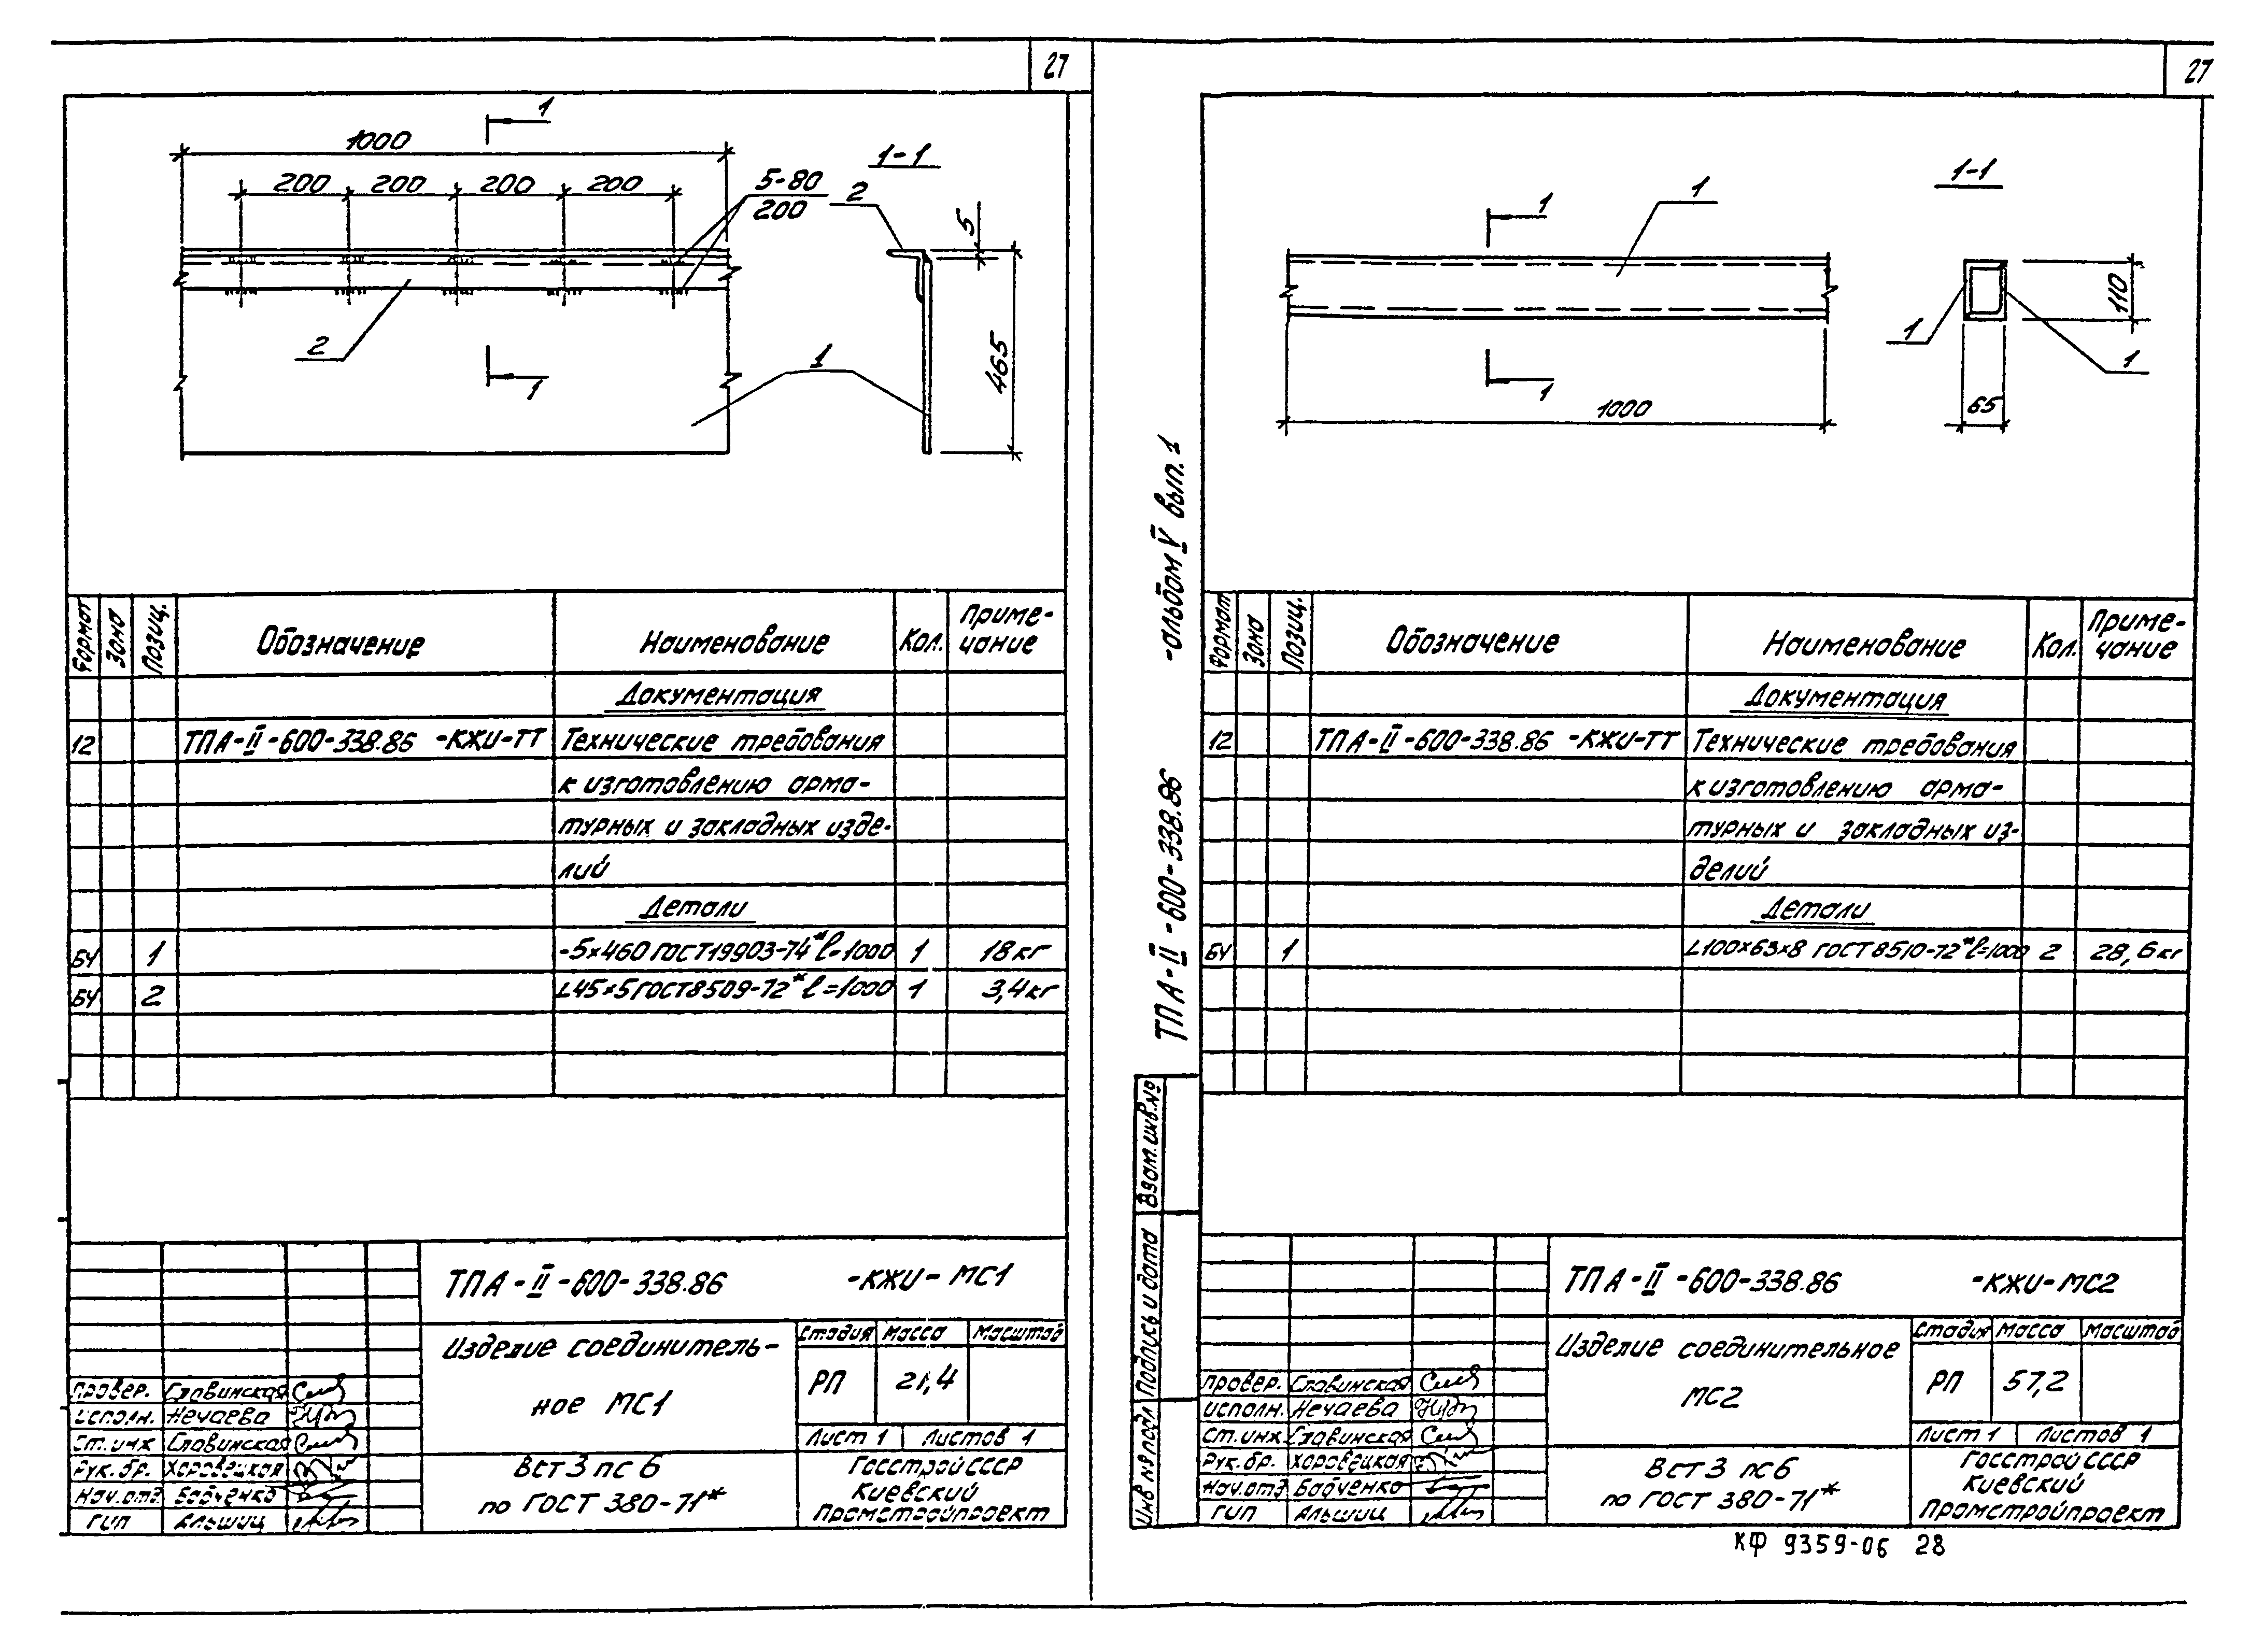 27
1
1000
200 200 200 200
5-80
200
1-1
2
5
465
2
1
1
Формат Зона Позиц. Обозначение Наименование Кол. Приме-
чание
Документация
12 ТПА-II-600-338.86 -КЖИ-ТТ Технические требования
к изготовлению арма-
турных и закладных изде-
лий
Детали
БЧ 1 -5×460 ГОСТ19903-74* ℓ=1000 1 18кг
БЧ 2 L45×5 ГОСТ8509-72* ℓ=1000 1 3,4кг
ТПА-II-600-338.86 -КЖИ-МС1
Изделие соединитель-
ное МС1
Стадия Масса Масштаб
РП 21,4
Лист 1 Листов 1
Провер. Славинская
Исполн. Нечаева
Ст.инж Славинская
Рук.бр. Хоровецкая
Нач.отд. Бабченко
ГИП Альшиц
ВСт3пс6
по ГОСТ 380-71*
Госстрой СССР
Киевский
Промстройпроект
27
1
1
1-1
110
1
1
1
1000
65
ТПА-II-600-338.86 -альбом V вып.1
Формат Зона Позиц. Обозначение Наименование Кол. Приме-
чание
Документация
12 ТПА-II-600-338.86 -КЖИ-ТТ Технические требования
к изготовлению арма-
турных и закладных из-
делий
Детали
БЧ 1 L100×63×8 ГОСТ8510-72* ℓ=1000 2 28,6кг
Взам.инв.№
Подпись и дата
Инв № подл
ТПА-II-600-338.86 -КЖИ-МС2
Изделие соединительное
МС2
Стадия Масса Масштаб
РП 57,2
Лист 1 Листов 1
Провер. Славинская
Исполн. Нечаева
Ст.инж Славинская
Рук.бр. Хоровецкая
Нач.отд Бабченко
ГИП Альшиц
ВСт3пс6
по ГОСТ 380-71*
Госстрой СССР
Киевский
Промстройпроект
КФ 9359-06 28